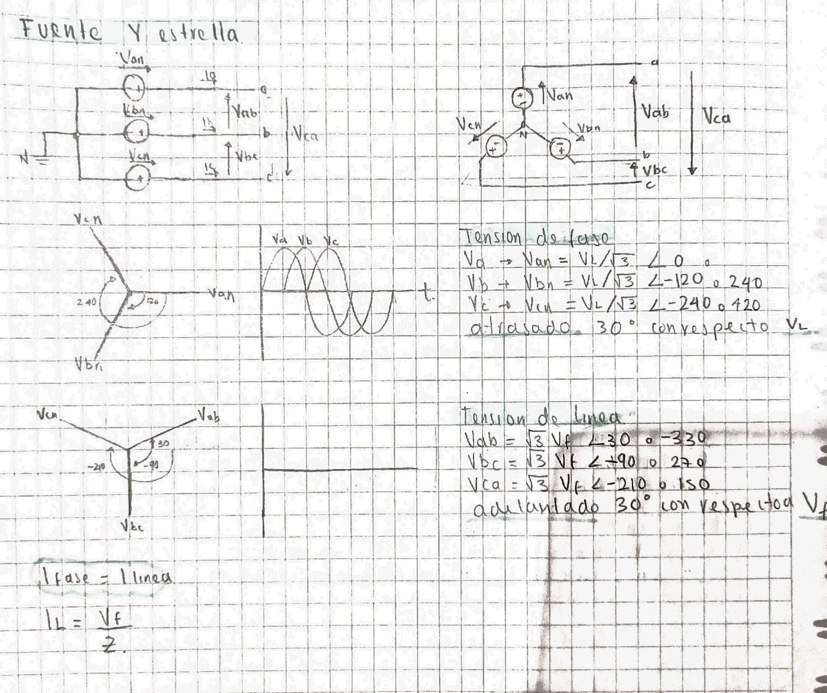 Fuente Y estrella
Van
Ia a
Vbn Vab
Ib b Vca
Vcn Vbc
N
a
Van
Vcn Vbn Vab Vca
N
b
Vbc
c
Vcn
240 120 Van
Vbn
Va Vb Vc
t
Tension de fase
Va → Van = VL/√3 ∠0
Vb → Vbn = VL/√3 ∠-120 o 240
Vc → Vcn = VL/√3 ∠-240 o 420
atrasado 30° con respecto VL
Vca Vab
30
-210 -90
Vbc
Tension de linea
Vab = √3 Vf ∠30 o -330
Vbc = √3 Vf ∠-90 o 270
Vca = √3 Vf ∠-210 o 150
adelantado 30° con respecto a Vf
I fase = I linea
IL = Vf
Z